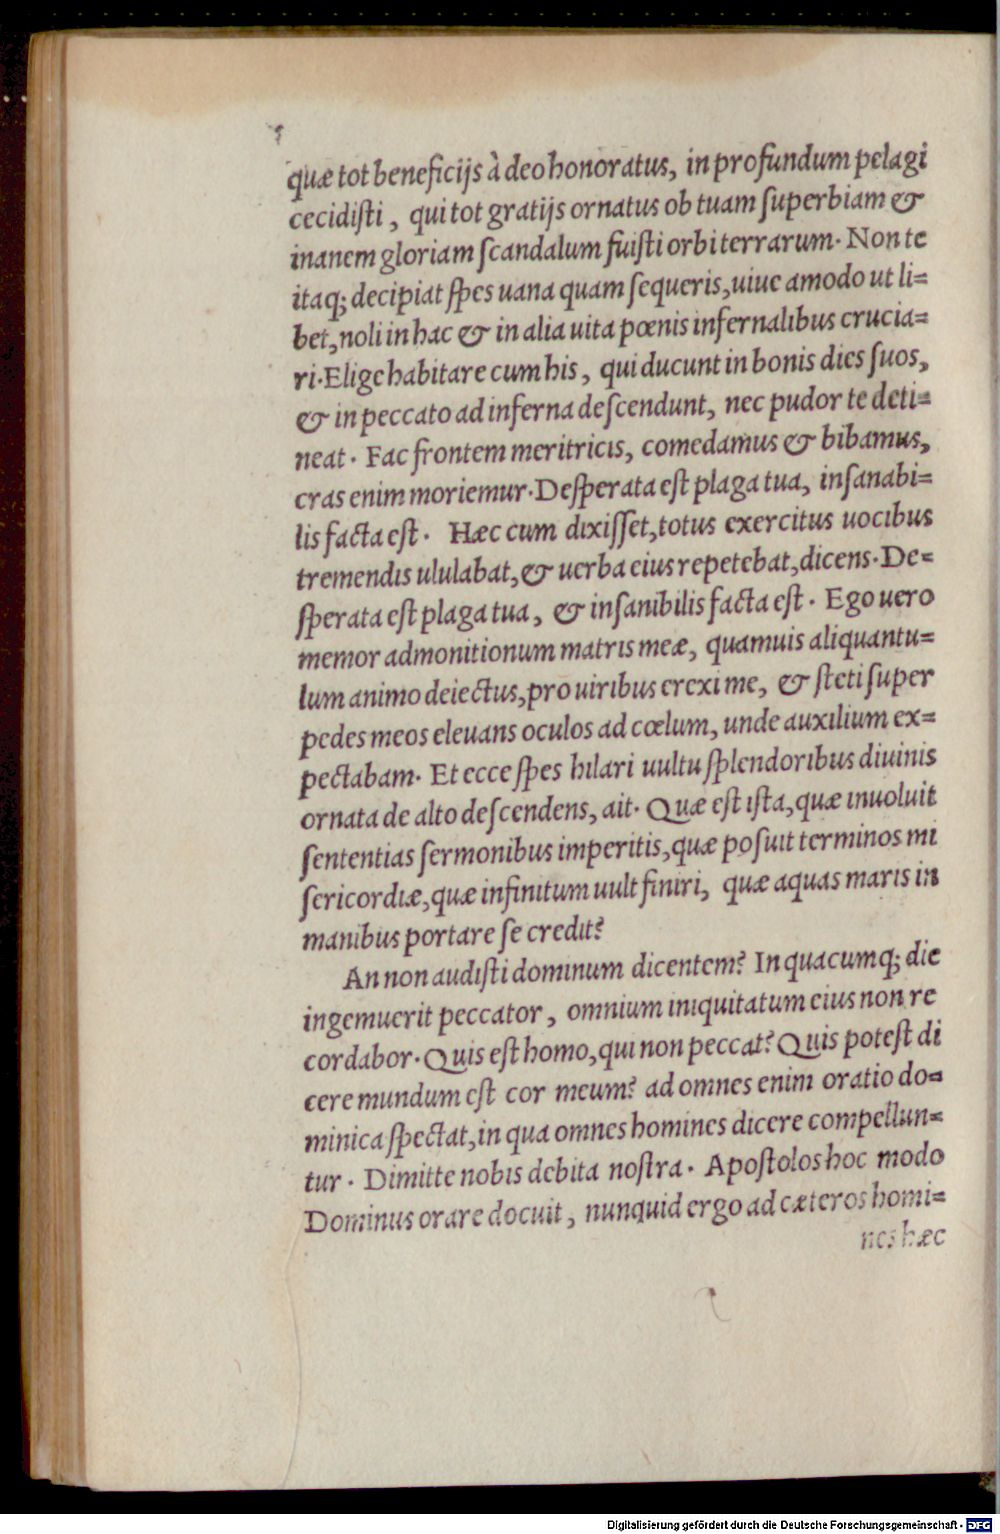 quæ tot beneficijs à deo honoratus, in profundum pelagi
cecidiſti, qui tot gratijs ornatus ob tuam ſuperbiam &
inanem gloriam ſcandalum fuiſti orbi terrarum. Non te
itaq; decipiat ſpes uana quam ſequeris, uiue amodo ut li=
bet, noli in hac & in alia uita pœnis infernalibus crucia=
ri. Elige habitare cum his, qui ducunt in bonis dies ſuos,
& in peccato ad inferna deſcendunt, nec pudor te deti=
neat. Fac frontem meritricis, comedamus & bibamus,
cras enim moriemur. Deſperata eſt plaga tua, inſanabi=
lis facta eſt. Hæc cum dixiſſet, totus exercitus uocibus
tremendis ululabat, & uerba eius repetebat, dicens. De=
ſperata eſt plaga tua, & inſanibilis facta eſt. Ego uero
memor admonitionum matris meæ, quamuis aliquantu=
lum animo deiectus, pro uiribus erexi me, & ſteti ſuper
pedes meos eleuans oculos ad cœlum, unde auxilium ex=
pectabam. Et ecce ſpes hilari uultu ſplendoribus diuinis
ornata de alto deſcendens, ait. Quæ eſt iſta, quæ inuoluit
ſententias ſermonibus imperitis, quæ poſuit terminos mi
ſericordiæ, quæ infinitum uult finiri, quæ aquas maris in
manibus portare ſe credit?
An non audiſti dominum dicentem? In quacumq; die
ingemuerit peccator, omnium iniquitatum eius non re
cordabor. Quis eſt homo, qui non peccat? Quis poteſt di
cere mundum eſt cor meum? ad omnes enim oratio do=
minica ſpectat, in qua omnes homines dicere compellun=
tur. Dimitte nobis debita noſtra. Apoſtolos hoc modo
Dominus orare docuit, nunquid ergo ad cæteros homi=
nes hæc
Digitalisierung gefördert durch die Deutsche Forschungsgemeinschaft - DFG